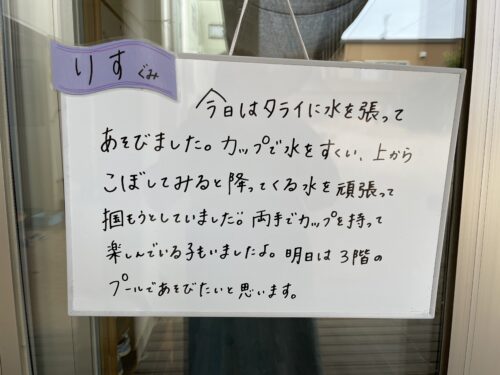 りすぐみ
今日はタライに水を張って
あそびました。カップで水をすくい、上から
こぼしてみると降ってくる水を頑張って
掴もうとしていました。両手でカップを持って
楽しんでいる子もいましたよ。明日は3階の
プールであそびたいと思います。